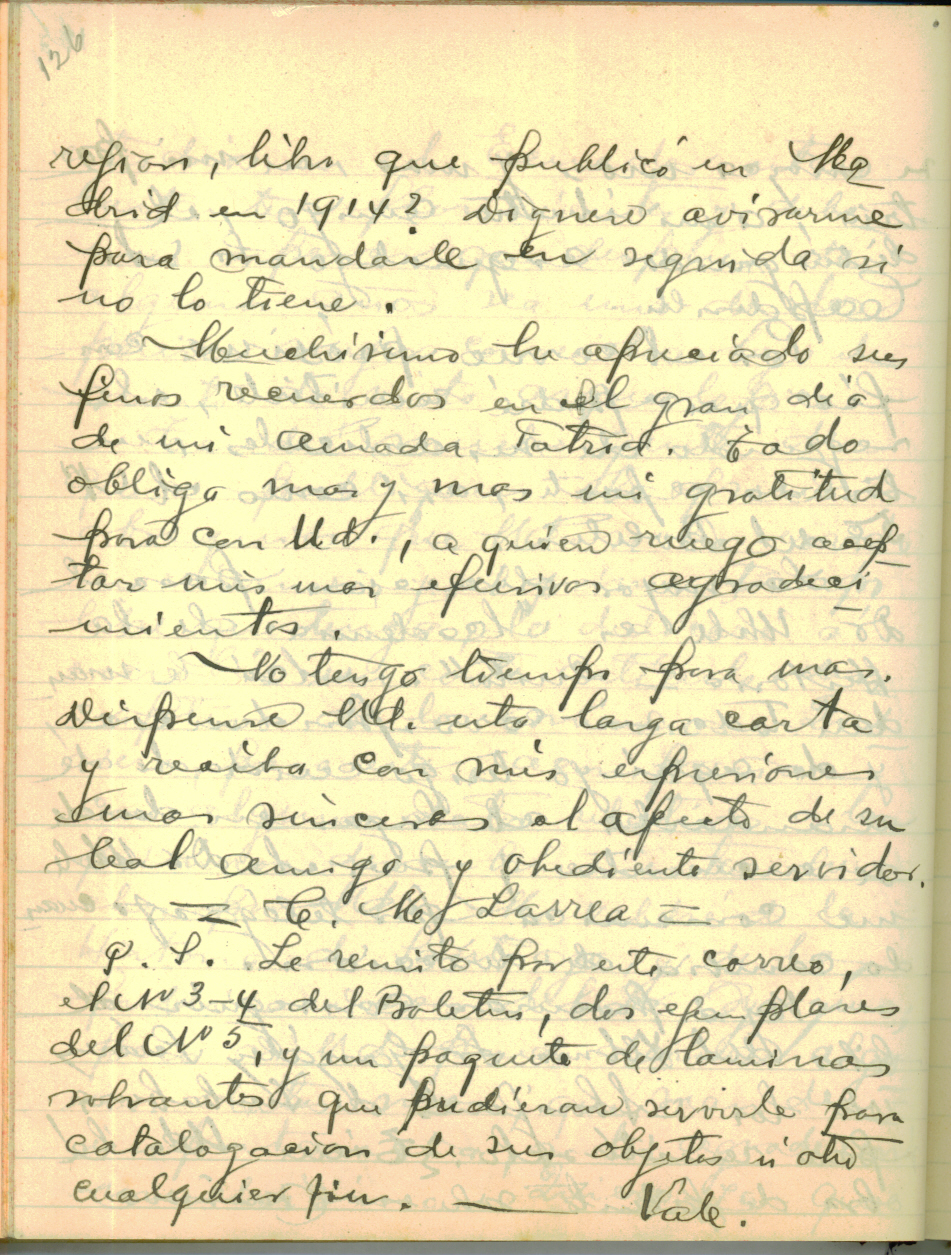 126
region, libro que publicó en Ma
drid en 1914? Dignese avisarme
para mandarle en seguida si
no lo tiene.
Muchisimo he apreciado sus
finos recuerdos en el gran dia
de mi amada Patria. Todo
obliga mas y mas mi gratitud
para con Ud., a quien ruego acep
tar mis mas efusivos agradeci
mientos.
No tengo tiempo para mas.
Dispense Ud. esta larga carta
y reciba con mis expresiones
mas sinceras el afecto de su
leal amigo y obediente servidor.
= C. M. Larrea =
P. S. Le remito por este correo,
el Nº 3-4 del Boletin, dos ejemplares
del Nº 5, y un paquete de laminas
sobrantes que pudieran servirle para
catalogacion de sus objetos u otro
cualquier fin. — Vale.